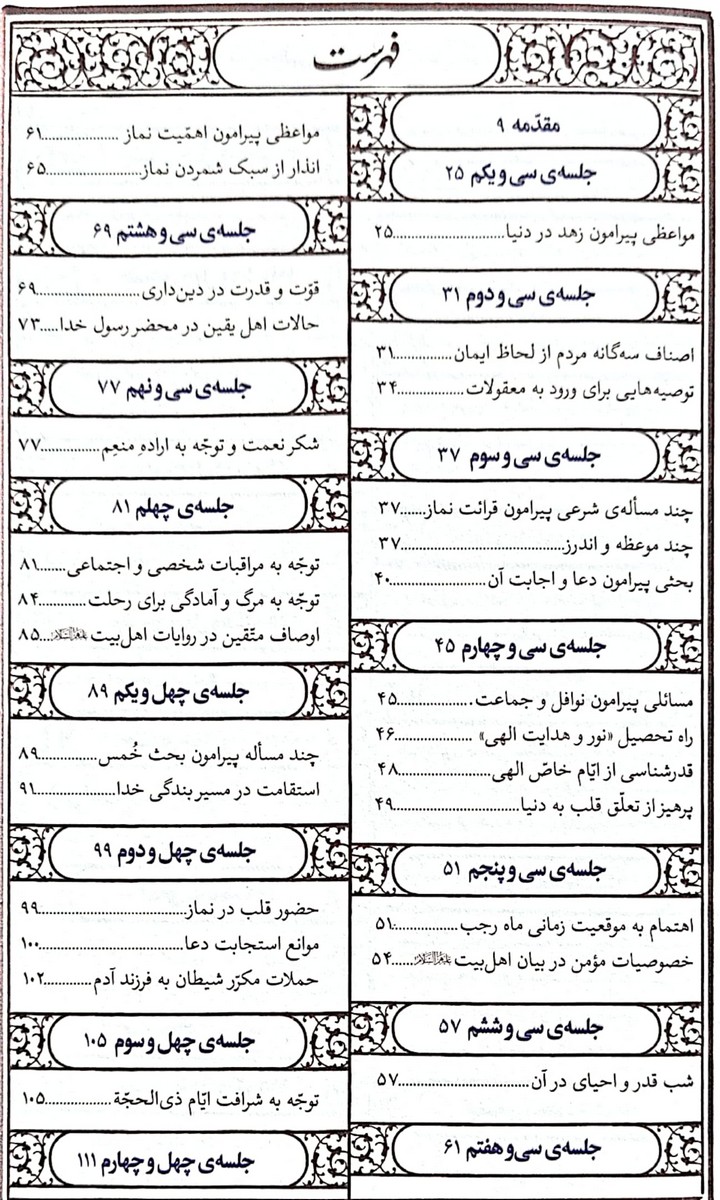 فهرست
مقدّمه ۹
جلسه‌ی سی و یکم ۲۵
مواعظی پیرامون زهد در دنیا..............................۲۵
جلسه‌ی سی و دوم ۳۱
اصناف سه‌گانه مردم از لحاظ ایمان...............۳۱
توصیه‌هایی برای ورود به معقولات.................۳۴
جلسه‌ی سی و سوم ۳۷
چند مسأله‌ی شرعی پیرامون قرائت نماز......۳۷
چند موعظه و اندرز..............................۳۷
بحثی پیرامون دعا و اجابت آن.....................۴۰
جلسه‌ی سی و چهارم ۴۵
مسائلی پیرامون نوافل و جماعت...................۴۵
راه تحصیل «نور و هدایت الهی» ...................۴۶
قدرشناسی از ایّام خاصّ الهی.......................۴۸
پرهیز از تعلّق قلب به دنیا..............................۴۹
جلسه‌ی سی و پنجم ۵۱
اهتمام به موقعیت زمانی ماه رجب................۵۱
خصوصیات مؤمن در بیان اهل‌بیت علیهم‌السلام......۵۴
جلسه‌ی سی و ششم ۵۷
شب قدر و احیای در آن..............................۵۷
جلسه‌ی سی و هفتم ۶۱
مواعظی پیرامون اهمّیت نماز ......................۶۱
انذار از سبک شمردن نماز..........................۶۵
جلسه‌ی سی و هشتم ۶۹
قوّت و قدرت در دین‌داری..........................۶۹
حالات اهل یقین در محضر رسول خدا.....۷۳
جلسه‌ی سی و نهم ۷۷
شکر نعمت و توجّه به اراده مِنعِم.............۷۷
جلسه‌ی چهلم ۸۱
توجّه به مراقبات شخصی و اجتماعی.......۸۱
توجّه به مرگ و آمادگی برای رحلت............۸۴
اوصاف متّقین در روایات اهل‌بیت علیهم‌السلام...۸۵
جلسه‌ی چهل و یکم ۸۹
چند مسأله پیرامون بحث خُمس................۸۹
استقامت در مسیر بندگی خدا....................۹۱
جلسه‌ی چهل و دوم ۹۹
حضور قلب در نماز..............................۹۹
موانع استجابت دعا..............................۱۰۰
حملات مکرّر شیطان به فرزند آدم............۱۰۲
جلسه‌ی چهل و سوم ۱۰۵
توجّه به شرافت ایّام ذی‌الحجّة.................۱۰۵
جلسه‌ی چهل و چهارم ۱۱۱